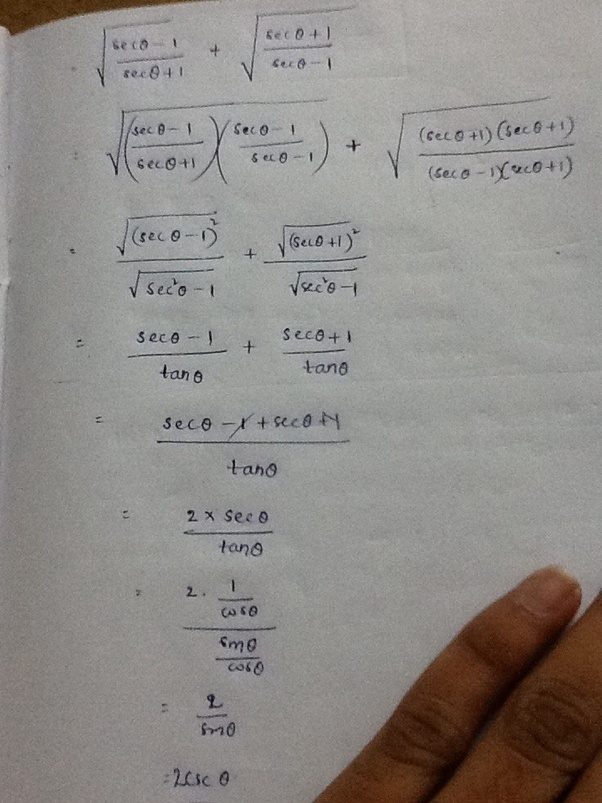 √((secθ - 1)/(secθ + 1)) + √((secθ + 1)/(secθ - 1))
= √(((secθ - 1)/(secθ + 1))((secθ - 1)/(secθ - 1))) + √(((secθ + 1)(secθ + 1))/((secθ - 1)(secθ + 1)))
= √((secθ - 1)²)/√(sec²θ - 1) + √((secθ + 1)²)/√(sec²θ - 1)
= (secθ - 1)/tanθ + (secθ + 1)/tanθ
= (secθ - 1 + secθ + 1)/tanθ
= (2 × secθ)/tanθ
= (2 · 1/cosθ)/(sinθ/cosθ)
= 2/sinθ
= 2csc θ